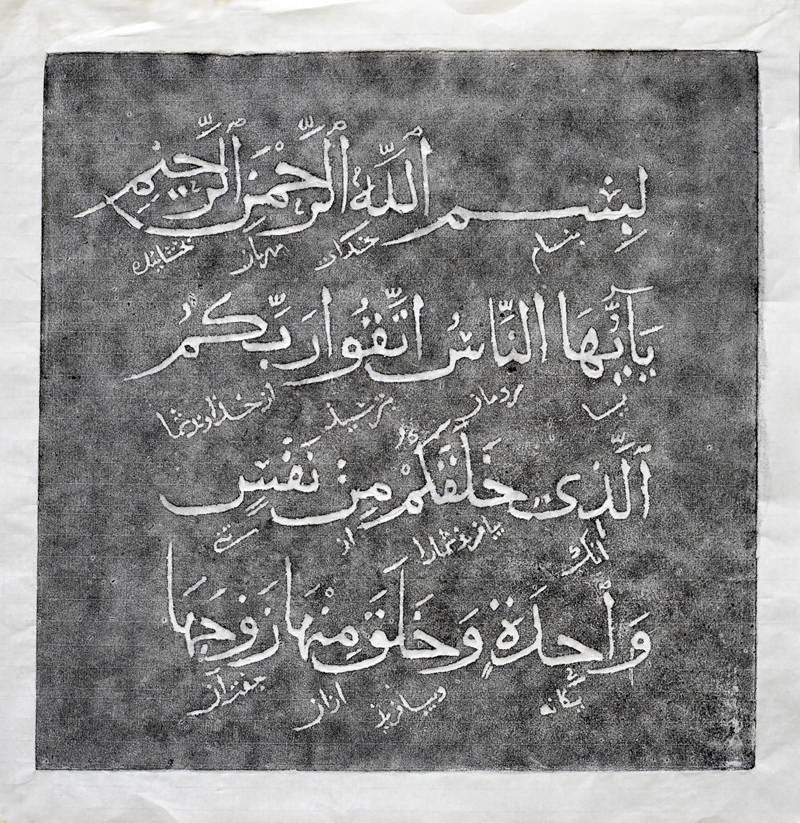 بِسْمِ ٱللَّهِ ٱلرَّحْمَٰنِ ٱلرَّحِيمِ
بنام خدای مهربان بخشاینده
يَآأَيُّهَا النَّاسُ اتَّقُوا رَبَّكُمُ
یا مردمان بترسید از خداوند شما
ٱلَّذِى خَلَقَكُمْ مِنْ نَفْسٍ
آنک بیافرید شما را از تنی
وَٰحِدَةٍ وَخَلَقَ مِنْهَا زَوْجَهَا
یگانه و بیافرید ازان جفت آن